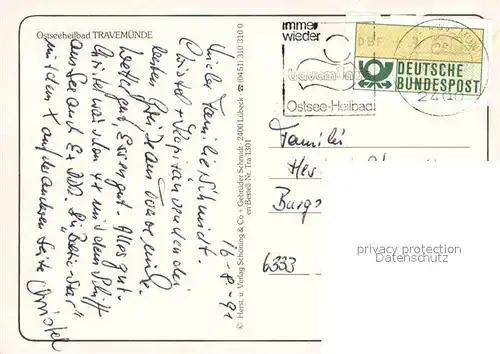 Ostseeheilbad TRAVEMÜNDE
16-8-91
Liebe Familie Schmidt.
Christel + Kapitän senden die
besten Grüße aus Travemünde.
Wetter gut Essen gut. Alles gut.
Christel war den 4x mit dem Schiff
auf See auch Ex DDR. Die "Baltic-Star"
mit dem X auf der anderen Seite Christel
© Herst. u. Verlag Schöning & Co + Gebrüder Schmidt · 2400 Lübeck · ☎ (0451) 310 310 0
en Bestell-Nr. Tra 1301
immer
wieder
travemünde
Ostsee-Heilbad
DBP
DEUTSCHE
BUNDESPOST
2400
Familie
Her
Burgs
6333
privacy protection
Datenschutz